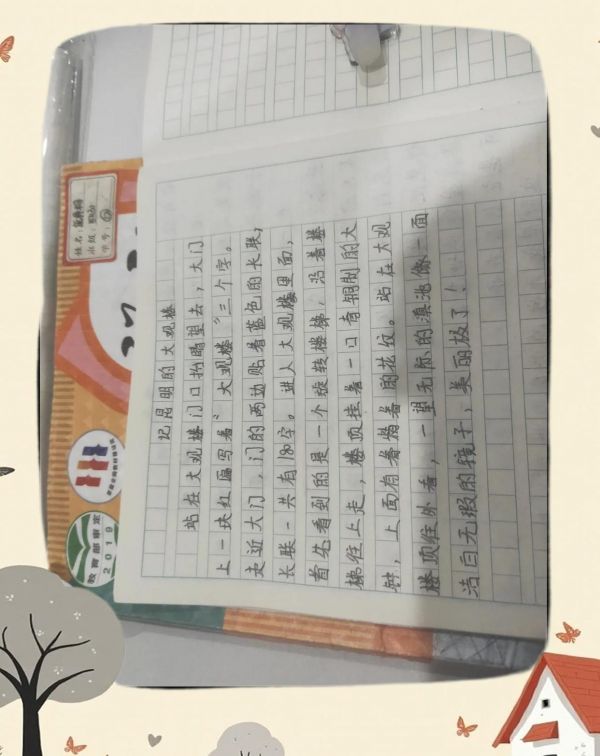 记昆明的大观楼
站在大观楼门口抬睛望去，大门
上一块红匾写着“大观楼”三个字。
走近大门，门的两边贴着蓝色的长联，
长联一共有180字。进入大观楼里面，
首先看到的是一个旋转楼梯，沿着楼
梯往上走，楼顶挂着一口青铜制的大
钟，上面有着精美的花纹。站在大观
楼顶往外看，一望无际的滇池像一面
洁白无瑕的镜子，美丽极了！
姓名：
班级：
学号：
教育部审定
2019